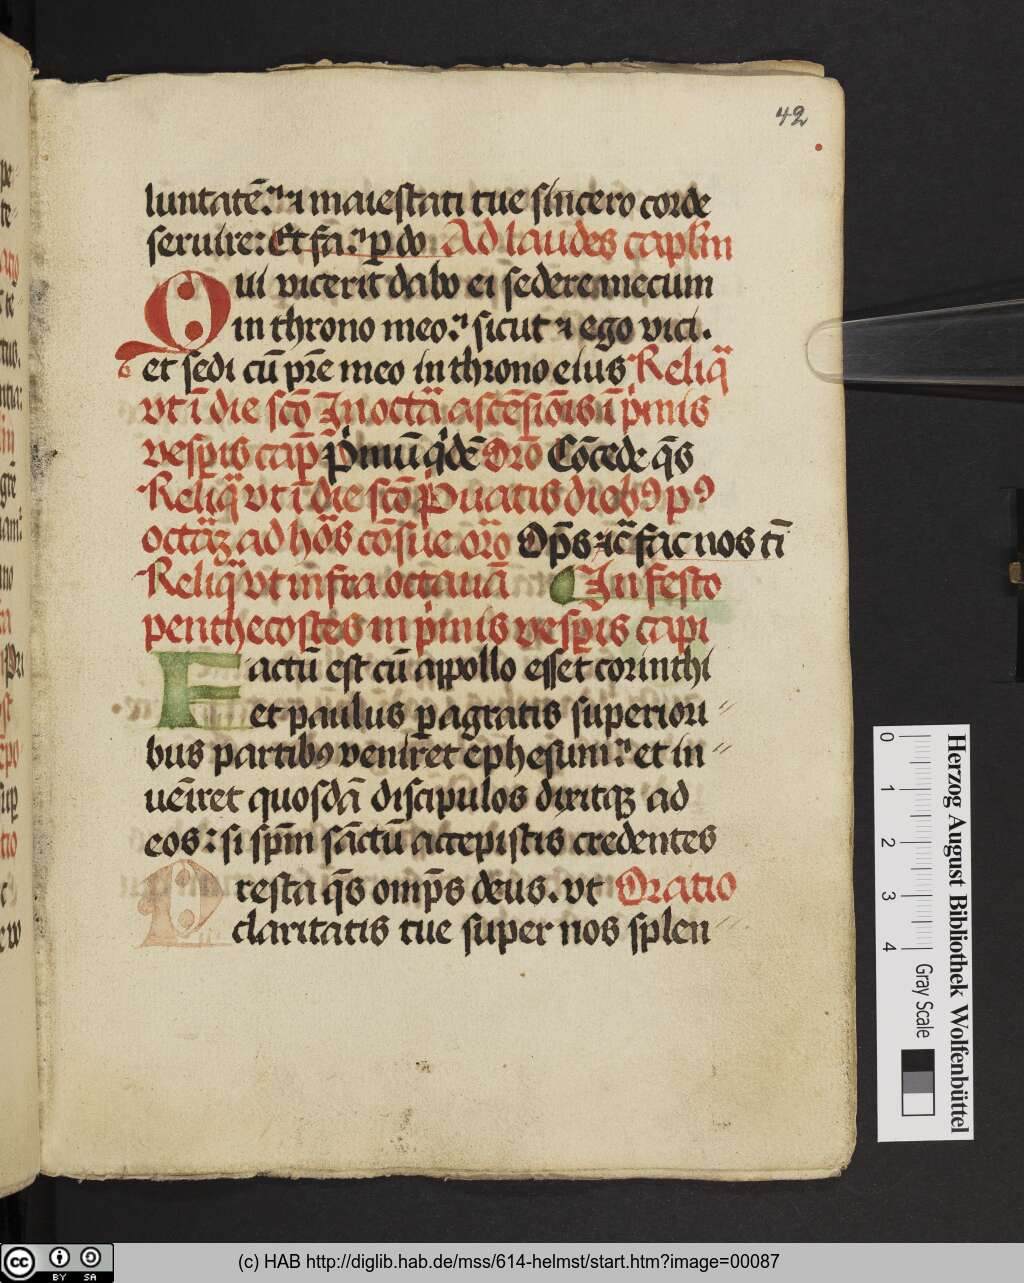 42
luntatē. ⁊ maiestati tue sincero corde
seruire: Et fa. ꝑ do Ad laudes capl̄m
Qui vicerit dabo ei sedere mecum
in throno meo. sicut ⁊ ego vici.
et sedi cū pr̄e meo in throno eius Reliq̄
vt ī die scō In octā ascēsiōis ī p̄mis
vesꝑis cap̄ Pͥmū qͥdē Orō Cōcede qs̄
Reliq̄ vt ī die scō Pͥuatis diebꝫ pꝰ
octāꝝ ad hōs cōsue orō Op̄s ⁊c̄ fac nos tī
Reliq̄ vt infra octauā In festo
penthecostes in pͥmis vesꝑis capi
Factū est cū appollo esset corinthi
et paulus ꝑagratis superiori
bus partibꝰ veniret ephesum. et in
uēiret quosdā discipulos dixitqꝫ ad
eos: si spm̄ sāctū accepistis credentes
Presta qs̄ omp̄s deus. vt Oratio
claritatis tue super nos splen
0 1 2 3 4
Gray Scale
Herzog August Bibliothek Wolfenbüttel
cc BY SA
(c) HAB http://diglib.hab.de/mss/614-helmst/start.htm?image=00087